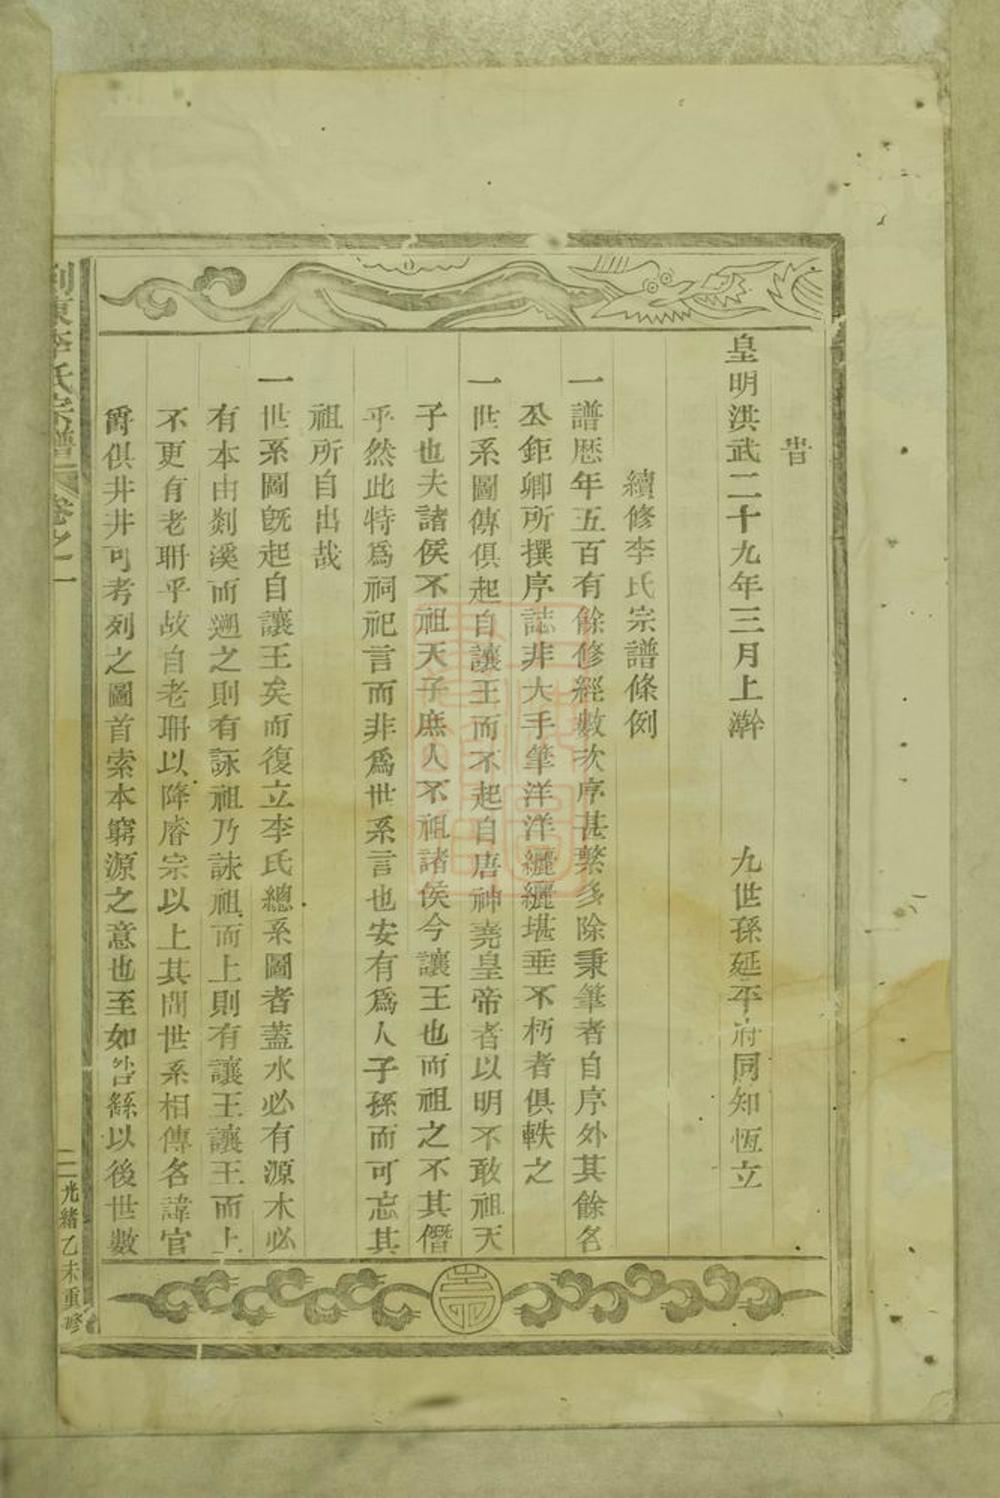 旹
皇明洪武二十九年三月上澣 九世孫延平府同知恆立
續修李氏宗譜條例
一譜歷年五百有餘修經數次序甚繁多除秉筆者自序外其餘名
公鉅卿所撰序誌非大手筆洋洋纚纚堪垂不朽者俱軼之
一世系圖傳俱起自讓王而不起自唐神堯皇帝者以明不敢祖天
子也夫諸侯不祖天子庶人不祖諸侯今讓王也而祖之不其僭
乎然此特為祠祀言而非為世系言也安有為人子孫而可忘其
祖所自出哉
一世系圖既起自讓王矣而復立李氏總系圖者蓋水必有源木必
有本由剡溪而遡之則有詠祖乃詠祖而上則有讓王讓王而上
不更有老聃乎故自老聃以降廥宗以上其間世系相傳名諱官
爵俱井井可考列之圖首索本窮源之意也至如咎繇以後世數
剡東李氏宗譜 卷之一
光緒乙未重修